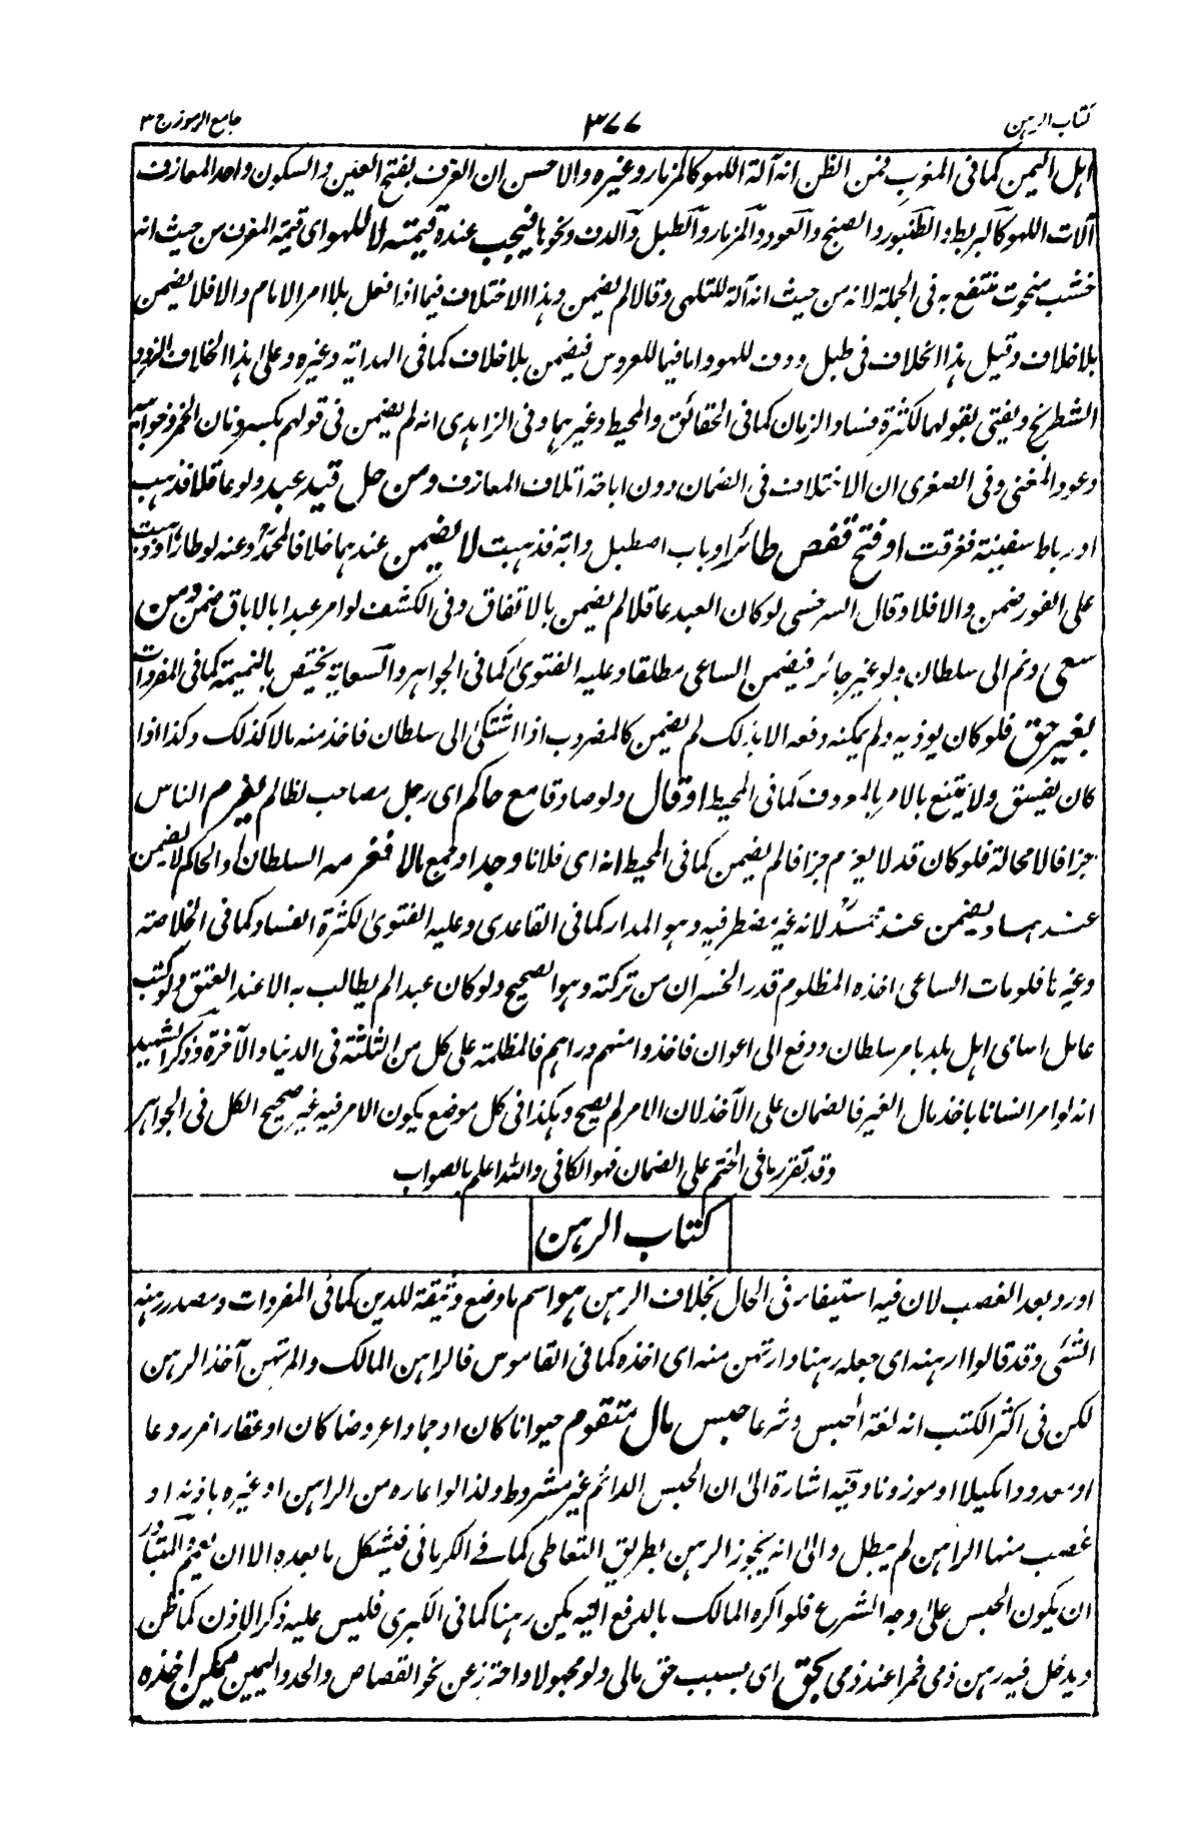 كتاب الرهن
٣٧٧
جامع الرموز ج ٣
اهل اليمن كما فى المغرب فمن الظن انه آلة اللهو كالمزمار وغيره والاحسن ان العزف بفتح العين والسكون واحد المعازف
آلات اللهو كالبربط والطنبور والصنج والعود والمزمار والطبل والدف ونحوها فيجب عنده قيمته لا للهو اى قيمة المعزف من حيث انه
خشب منحوت منتفع به فى الجملة لانه من حيث انه آلة للتلهى وقالا لم يضمن وهذا الاختلاف فيما اذا فعل بلا امر الامام والا فلا يضمن
بلا خلاف وقيل هذا الخلاف فى طبل ودف للهو واما فيما للعروس فيضمن بلا خلاف كما فى الهداية وغيره وعلى هذا الخلاف النرد و
الشطرنج ويفتى بقولهما لكثرة فساد الزمان كما فى الحقائق والمحيط وغيرهما وفى الزاهدى انه لم يضمن فى قولهم بكسر دنان الخمر وخوابيه
وعود المغنى وفى الصغرى ان الاختلاف فى الضمان دون اباحة اتلاف المعازف ومن حل قيد عبد ولو عاقلا فذهب
او رباط سفينة فغرقت او فتح قفص طائر او باب اصطبل دابة فذهبت لا يضمن عندهما خلافا لمحمد وعنه لو طار او ذهبت
على الفور ضمن والا فلا وقال السرخسى لو كان العبد عاقلا لم يضمن بالاتفاق وفى الكشف لو امر عبدا بالاباق ضمن ومن
سعى ونم الى سلطان ولو غير جائر فيضمن الساعى مطلقا وعليه الفتوى كما فى الجواهر والسعاية يختص بالنميمة كما فى المفردات
بغير حق فلو كان يوذيه ولم يمكنه دفعه الا بذلك لم يضمن كالمضروب اذا اشتكى الى سلطان فاخذ منه مالا كذلك وكذا اذا
كان يفسق ولا يمتنع بالامر بالمعروف كما فى المحيط او قال ولو صادقا مع حاكم اى رجل مصاحب لظالم يغرم الناس
جزافا لا محالة فلو كان قد لا يغرم جزافا لم يضمن كما فى المحيط انه اى فلانا وجد او جمع مالا فغرمه السلطان او الحاكم لا يضمن
عندهما ويضمن عند محمد لانه غير مضطر فيه وهو المدار كما فى القاعدى وعليه الفتوى لكثرة الفساد كما فى الخلاصة
وغيرها فلو مات الساعى اخذه المظلوم قدر الخسران من تركته وهو الصحيح ولو كان عبدا لم يطالب به الا عند العتق ولو كتب
عامل اسامى اهل بلد بامر سلطان ودفع الى اعوان فاخذوا منهم دراهم فالمظلمة على كل من الثلثة فى الدنيا والآخرة وذكر الشهيد
انه لو امر انسانا باخذ مال الغير فالضمان على الآخذ لان الامر لم يصح وهكذا فى كل موضع يكون الامر فيه غير صحيح الكل فى الجواهر
وقد تقرر ما فى الختم على الضمان فهو الكافى والله اعلم بالصواب
كتاب الرهن
اورد بعد الغصب لان فيه استيفاء فى الحال بخلاف الرهن هو اسم ما وضع وثيقة للدين كما فى المفردات ومصدر رهنه
الشئى وقد قالوا ارهنه اى جعله رهنا وارتهن منه اى اخذه كما فى القاموس فالراهن المالك والمرتهن آخذ الرهن
لكن فى اكثر الكتب انه لغة الحبس وشرعا حبس مال متقوم حيوانا كان او جمادا عروضا كان او عقارا مزروعا
او معدودا مكيلا او موزونا وفيه اشارة الى ان الحبس الدائم غير مشروط ولذا لو اعاره من الراهن او غيره باذنه او
غصب منها الراهن لم يبطل والى انه يجوز الرهن بطريق التعاطى كما فى الكرمانى فيشكل ما بعده الا ان يعم والمتبادر
ان يكون الحبس على وجه الشرع فلو اكره المالك بالدفع اليه لم يكن رهنا كما فى الكبرى فليس عليه ذكر الاذن كما ظن
ويدخل فيه رهن ذمى خمرا عند ذمى بحق اى بسبب حق مالى ولو مجهولا واحترز عن نحو القصاص والحد واليمين يمكن اخذه